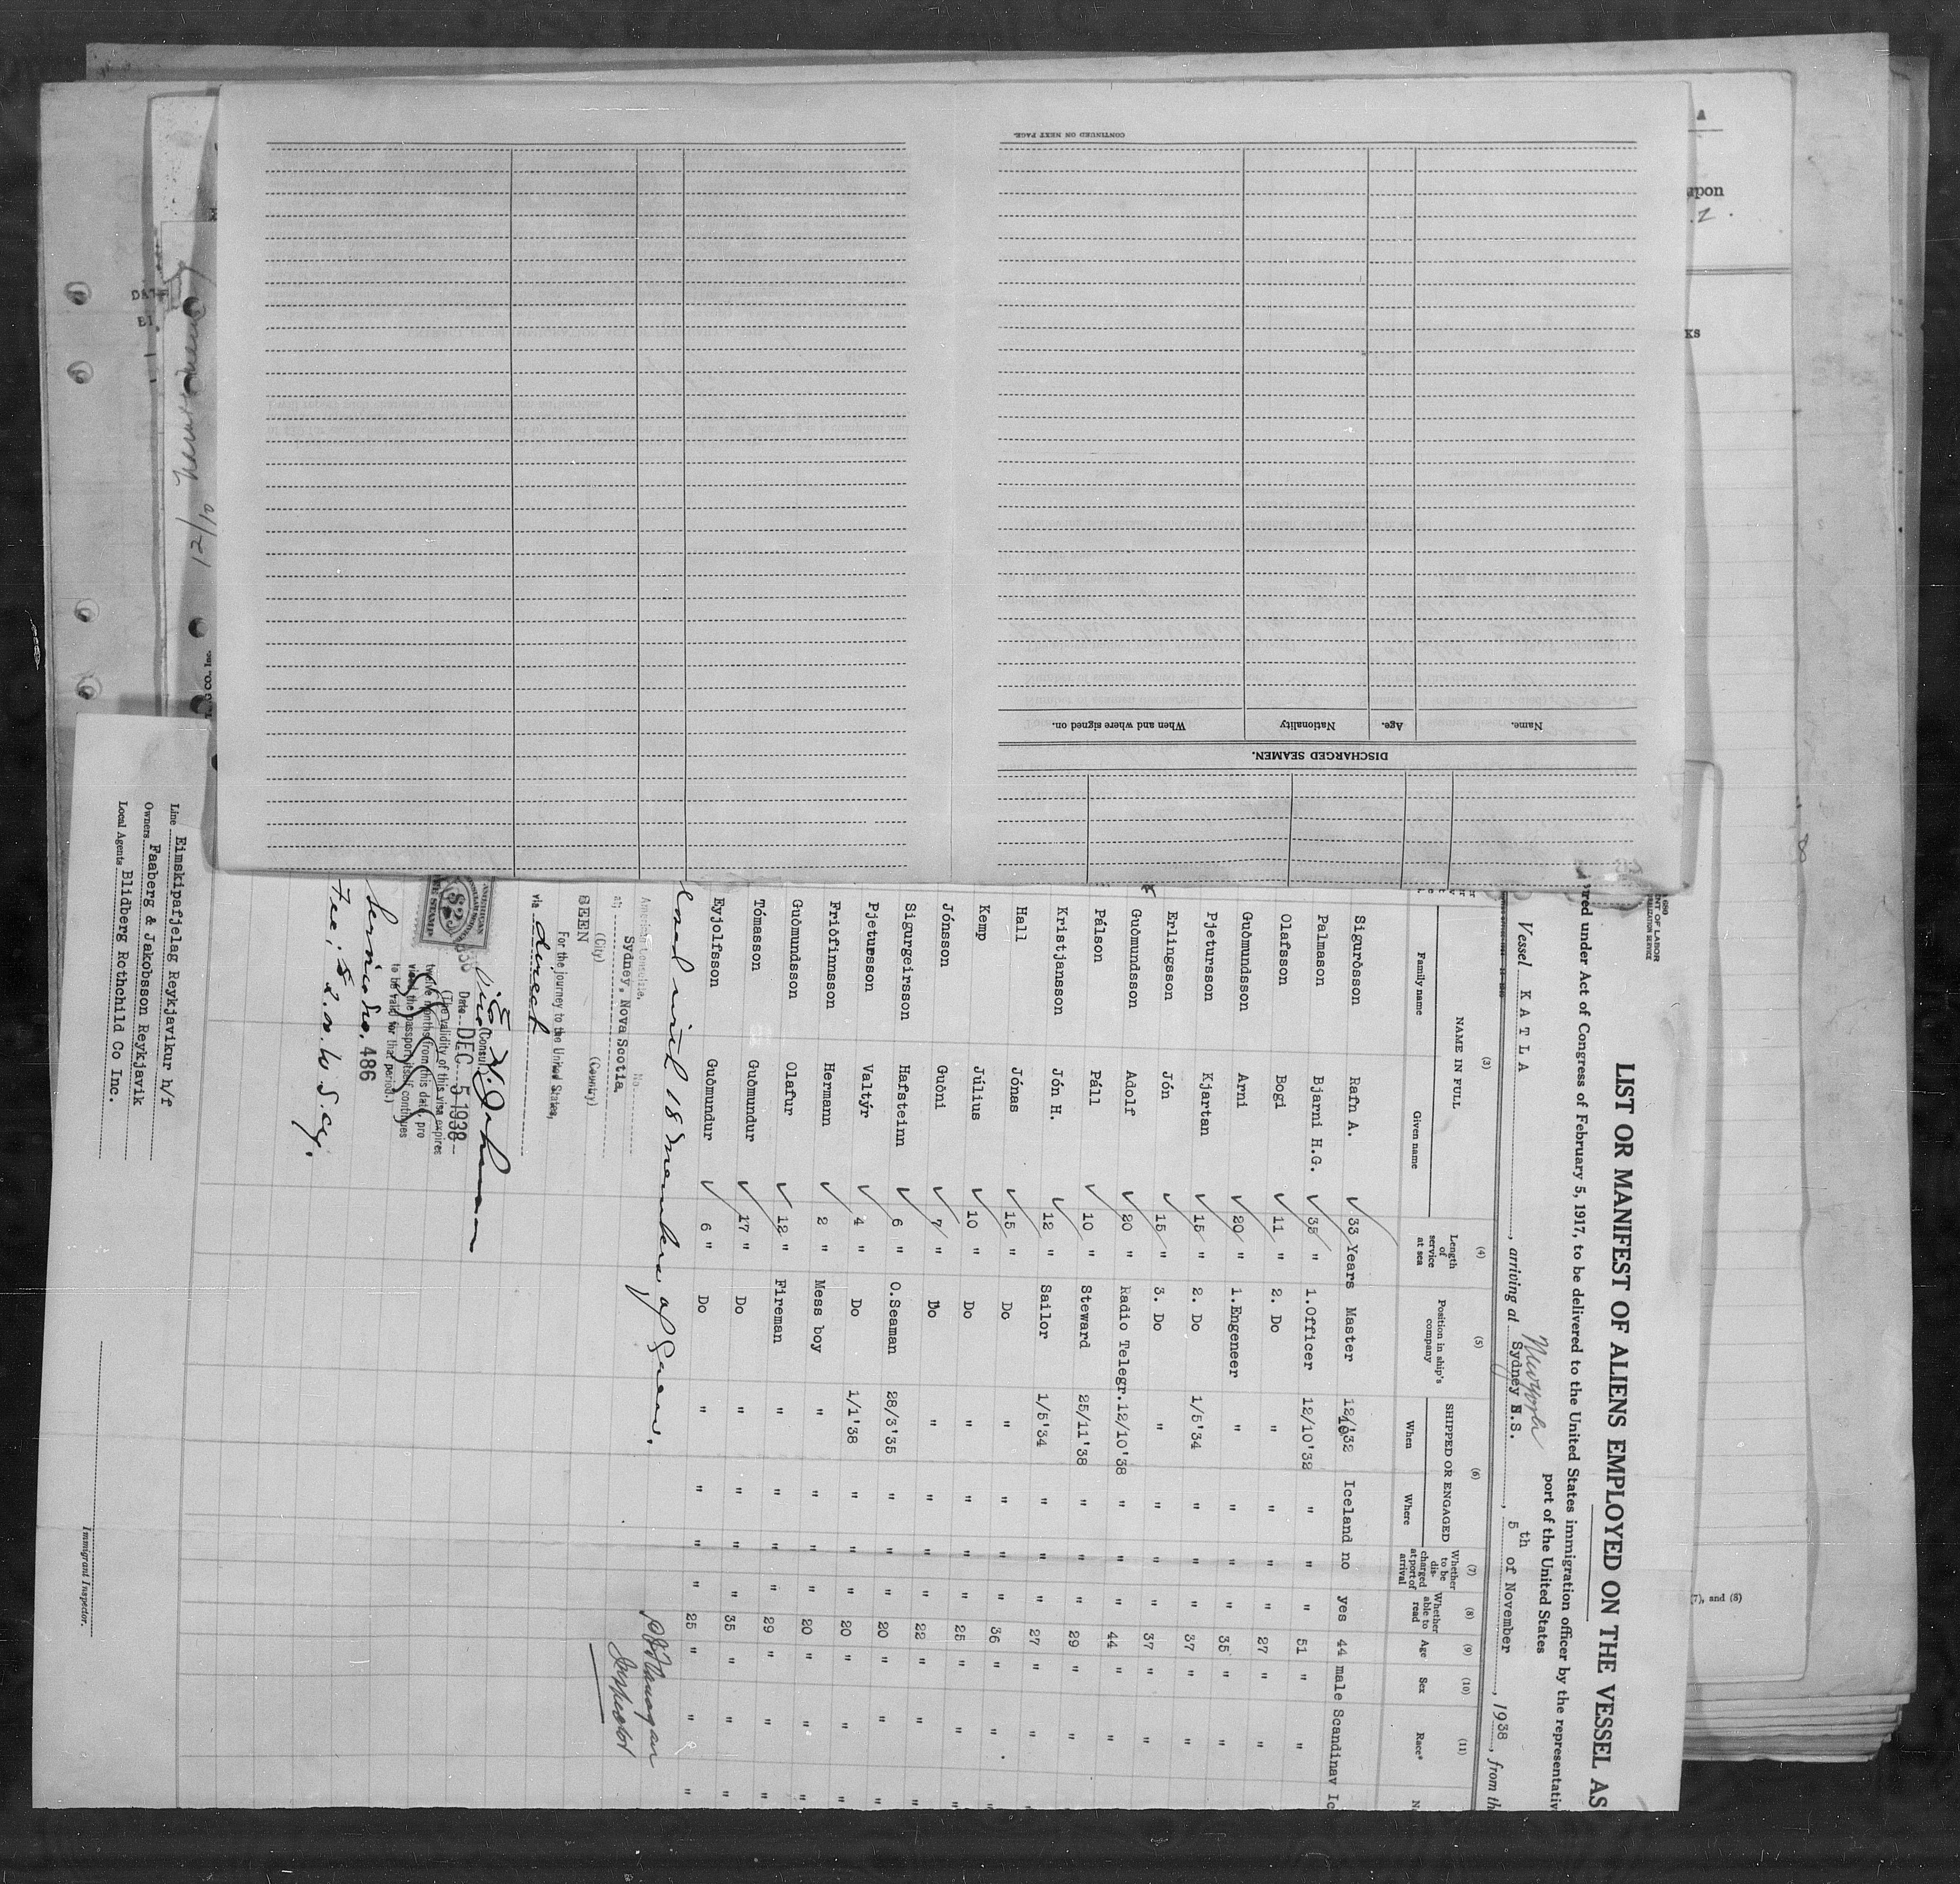 CONTINUED ON NEXT PAGE.
DISCHARGED SEAMEN.
Name.
Age.
Nationality
When and where signed on.
upon
(7), and (8)
LIST OR MANIFEST OF ALIENS EMPLOYED ON THE VESSEL AS
red under Act of Congress of February 5, 1917, to be delivered to the United States immigration officer by the representativ
port of the United States
Vessel KATLA, arriving at Sydney N.S., 5th of November, 1938, from th
(3) (4) (5) (6) (7) (8) (9) (10) (11)
NAME IN FULL
Family name Given name
Length of service at sea
Position in ship's company
SHIPPED OR ENGAGED
When Where
Whether to be discharged at port of arrival
Whether able to read
Age Sex Race*
Sigurðsson Rafn A. 33 Years Master 12/10'32 Iceland no yes 44 male Scandinav Ic
Palmason Bjarni H.G. 35 " 1.Officer 12/10'32 " " " 51 " "
Olafsson Bogi 11 " 2. Do " " " " 27 " "
Guðmundsson Arni 20 " 1.Engeneer " " " " 35 " "
Pjetursson Kjartan 15 " 2. Do 1/5'34 " " " 37 " "
Erlingsson Jón 15 " 3. Do " " " " 37 " "
Guðmundsson Adolf 20 " Radio Telegr. 12/10'38 " " " 44 " "
Pálson Páll 10 " Steward 25/11'38 " " " 29 " "
Kristjansson Jón H. 12 " Sailor 1/5'34 " " " 27 " "
Hall Jónas 15 " Do " " " " 36 " "
Kemp Július 10 " Do " " " " 25 " "
Jónsson Guðni 7 " Do " " " " 22 " "
Sigurgeirsson Hafsteinn 6 " O.Seaman 28/3'35 " " " 20 " "
Pjetursson Valtýr 4 " Do 1/1'38 " " " 20 " "
Friðfinnsson Hermann 2 " Mess boy " " " " 20 " "
Guðmundsson Olafur 12 " Fireman " " " " 29 " "
Tómasson Guðmundur 17 " Do " " " " 35 " "
Eyjolfsson Guðmundur 6 " Do " " " " 25 " "
losed with 18 members of crew.
Inspector
American Consulate,
No.
at: Sydney, Nova Scotia,
(City) (Country)
SEEN
For the journey to the United States,
via direct
Vice Consul
Date DEC 5 1938
(The validity of this visa expires
twelve months from this date, pro
vided the passport itself continues
to be valid for that period.)
Service No. 486
Fee; $2.
Line Eimskipafjelag Reykjavikur h/f
Owners Faaberg & Jakobsson Reykjavik
Local Agents Blidberg Rothchild Co Inc.
Immigrant Inspector.